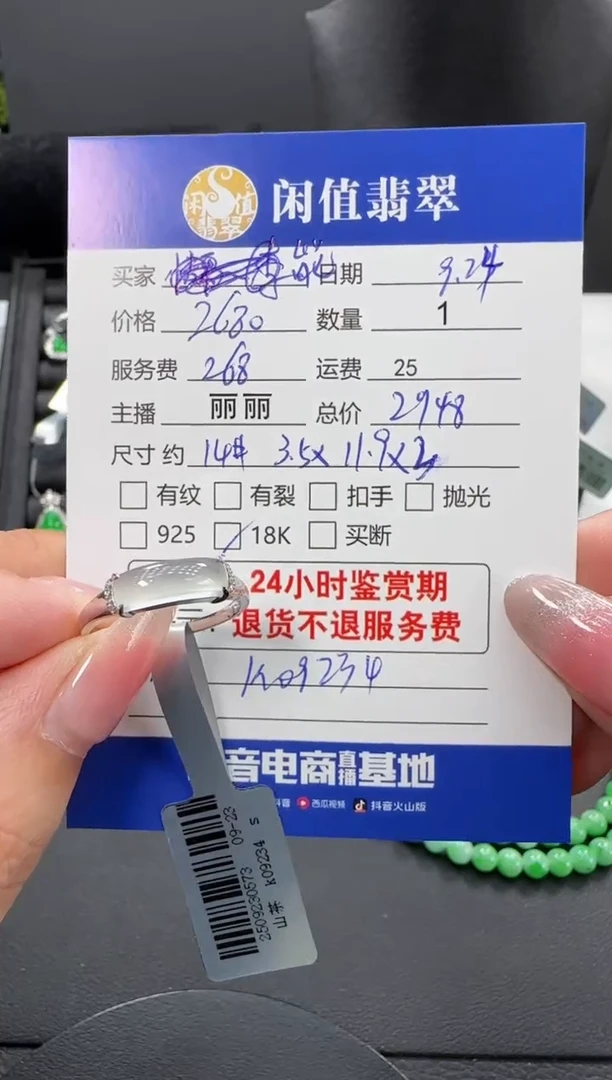 闲值翡翠
闲值翡翠
买家 日期 9.24
价格 2680 数量 1
服务费 268 运费 25
主播 丽丽 总价 2948
尺寸约 14# 3.5x 11.9x2
有纹 有裂 扣手 抛光
925 18K 买断
24小时鉴赏期
退货不退服务费
K09234
音电商直播基地
抖音 西瓜视频 抖音火山版
09-23
2509230573
K09234 S